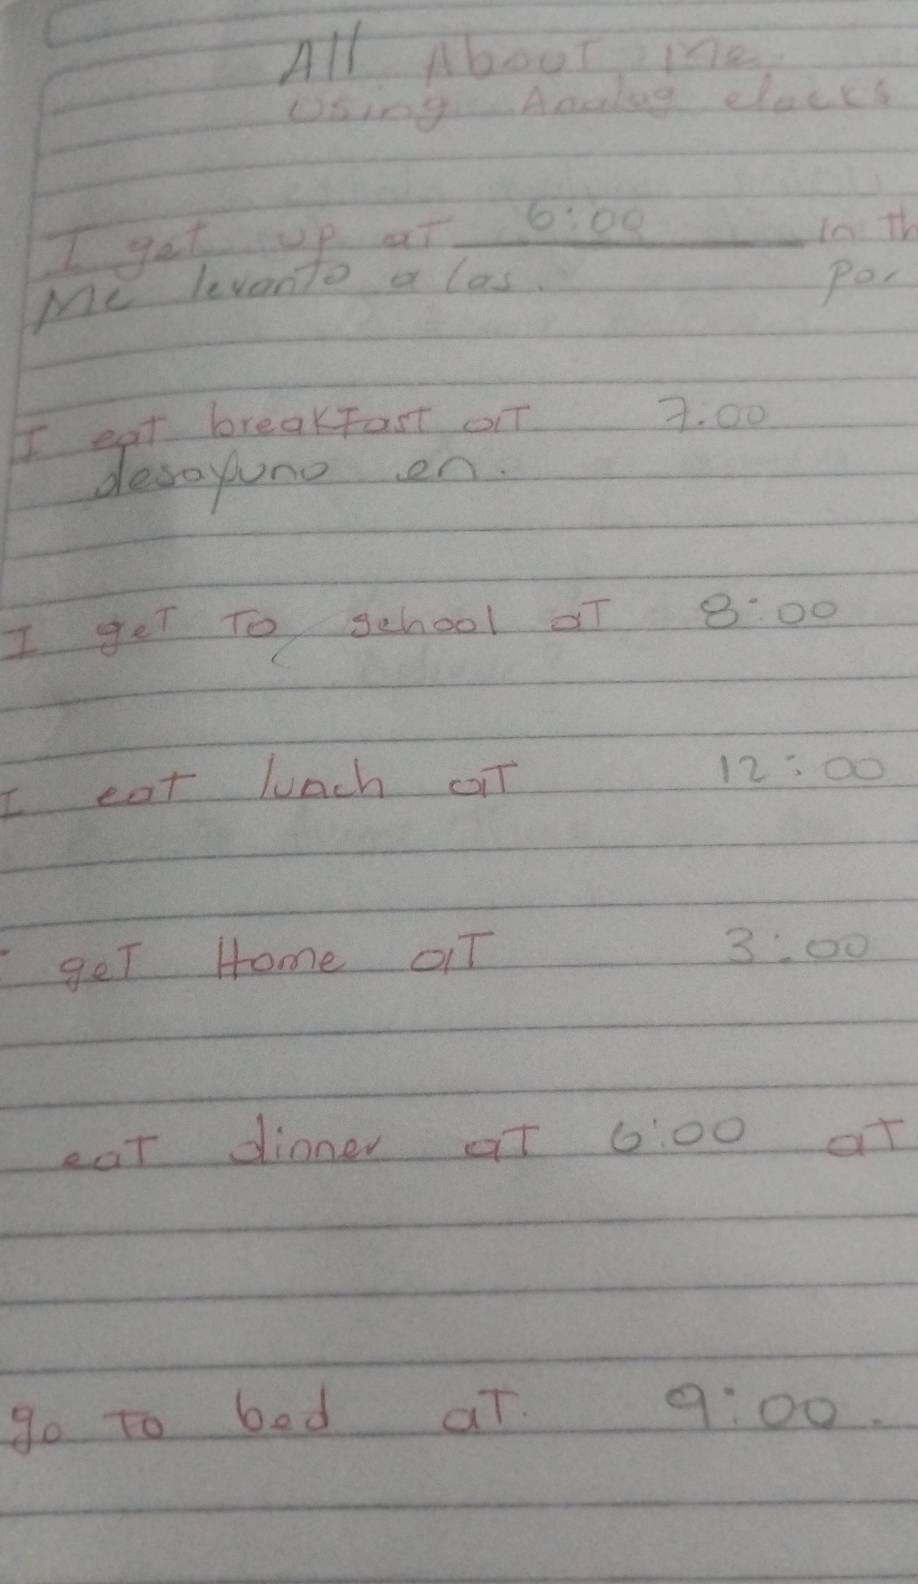 All About Me
Using Analog clocks
I get up at 6:00 in th
Me levanto a las. Por
I eat breakfast at 7:00
desayuno en.
I get To school at 8:00
I eat lunch at 12:00
get Home at 3:00
eat dinner at 6:00 at
go to bed at. 9:00.